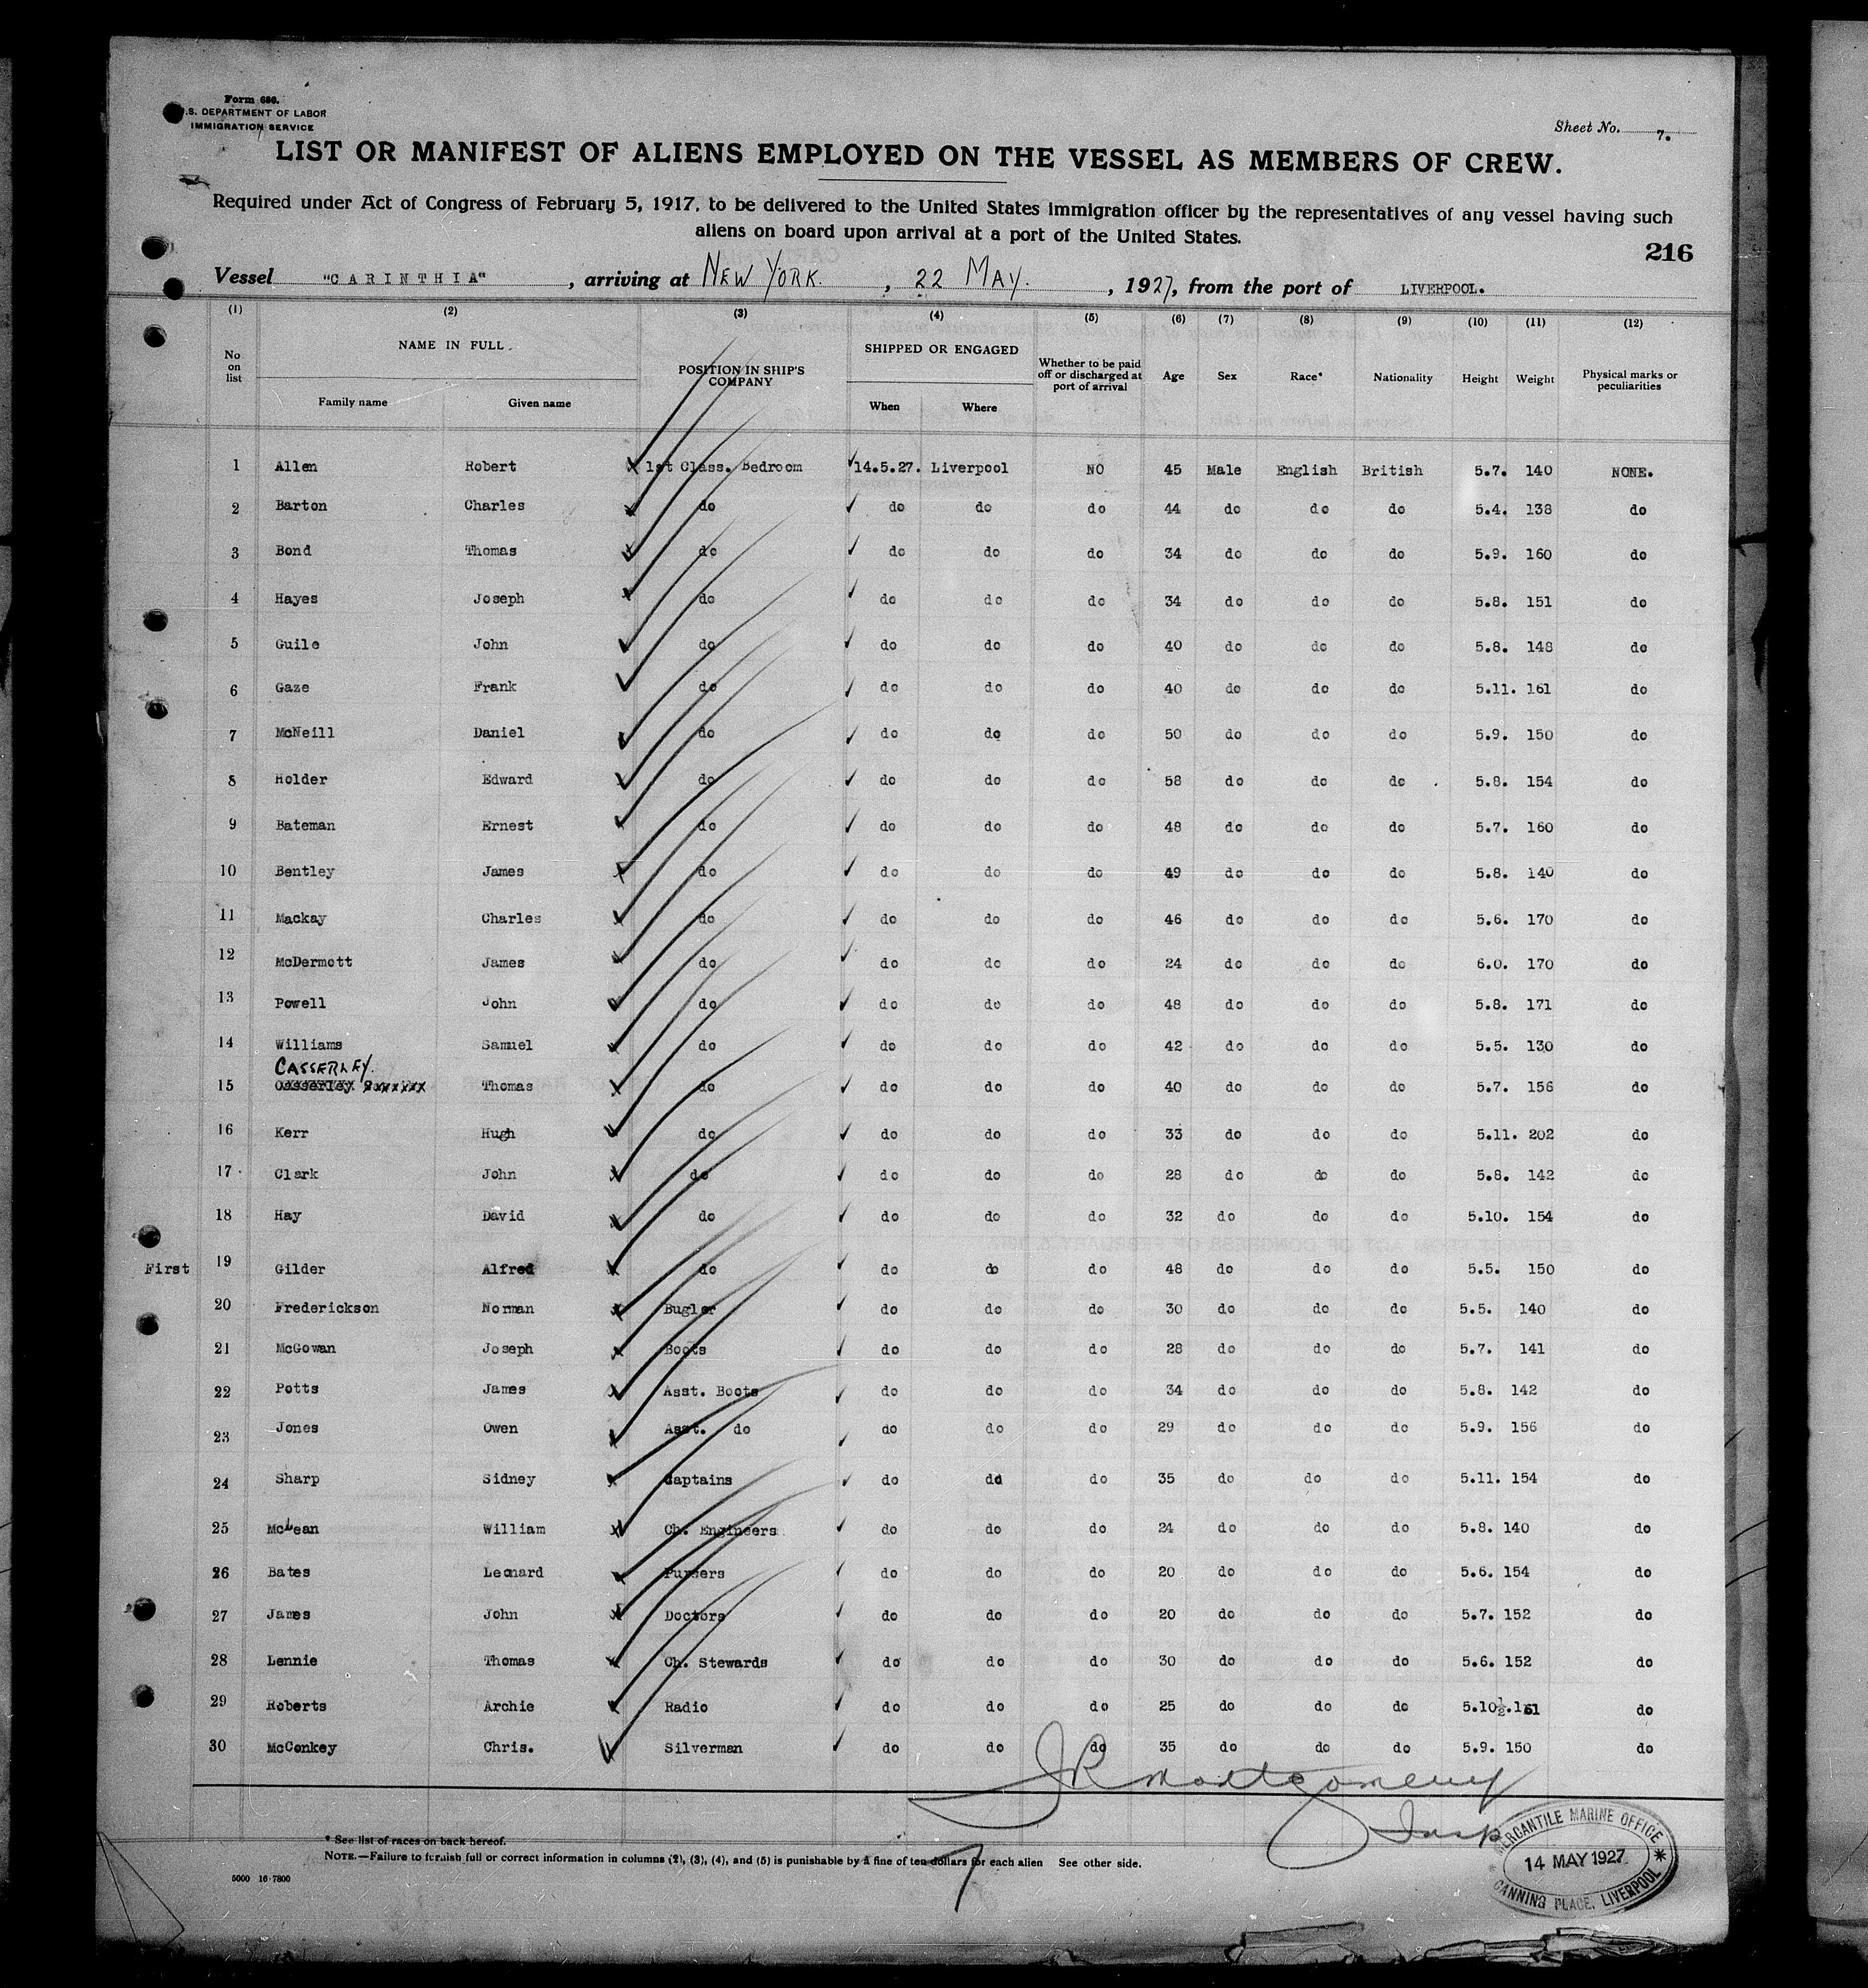 Form 686.
U.S. DEPARTMENT OF LABOR
IMMIGRATION SERVICE
Sheet No. 7.
LIST OR MANIFEST OF ALIENS EMPLOYED ON THE VESSEL AS MEMBERS OF CREW.
Required under Act of Congress of February 5, 1917, to be delivered to the United States immigration officer by the representatives of any vessel having such
aliens on board upon arrival at a port of the United States.
216
Vessel "CARINTHIA", arriving at NEW YORK. , 22 MAY. , 1927, from the port of LIVERPOOL.
(1) (2) (3) (4) (5) (6) (7) (8) (9) (10) (11) (12)
No on list NAME IN FULL POSITION IN SHIP'S COMPANY SHIPPED OR ENGAGED Whether to be paid off or discharged at port of arrival Age Sex Race* Nationality Height Weight Physical marks or peculiarities
Family name Given name When Where
1 Allen Robert 1st Class. Bedroom 14.5.27. Liverpool NO 45 Male English British 5.7. 140 NONE.
2 Barton Charles do do do do 44 do do do 5.4. 138 do
3 Bond Thomas do do do do 34 do do do 5.9. 160 do
4 Hayes Joseph do do do do 34 do do do 5.8. 151 do
5 Guile John do do do do 40 do do do 5.8. 148 do
6 Gaze Frank do do do do 40 do do do 5.11. 161 do
7 McNeill Daniel do do do do 50 do do do 5.9. 150 do
8 Holder Edward do do do do 58 do do do 5.8. 154 do
9 Bateman Ernest do do do do 48 do do do 5.7. 160 do
10 Bentley James do do do do 49 do do do 5.8. 140 do
11 Mackay Charles do do do do 46 do do do 5.6. 170 do
12 McDermott James do do do do 24 do do do 6.0. 170 do
13 Powell John do do do do 48 do do do 5.8. 171 do
14 Williams Samuel do do do do 42 do do do 5.5. 130 do
CASSERLEY.
15 Casserley Thomas do do do do 40 do do do 5.7. 156 do
16 Kerr Hugh do do do do 33 do do do 5.11. 202 do
17 Clark John do do do do 28 do do do 5.8. 142 do
18 Hay David do do do do 32 do do do 5.10. 154 do
First 19 Gilder Alfred do do do do 48 do do do 5.5. 150 do
20 Frederickson Norman Bugler do do do 30 do do do 5.5. 140 do
21 McGowan Joseph Boots do do do 28 do do do 5.7. 141 do
22 Potts James Asst. Boots do do do 34 do do do 5.8. 142 do
23 Jones Owen Asst. do do do do 29 do do do 5.9. 156 do
24 Sharp Sidney Captains do do do 35 do do do 5.11. 154 do
25 McLean William Ch. Engineers do do do 24 do do do 5.8. 140 do
26 Bates Leonard Pursers do do do 20 do do do 5.6. 154 do
27 James John Doctors do do do 20 do do do 5.7. 152 do
28 Lennie Thomas Ch. Stewards do do do 30 do do do 5.6. 152 do
29 Roberts Archie Radio do do do 25 do do do 5.10½. 161 do
30 McConkey Chris. Silverman do do do 35 do do do 5.9. 150 do
JR Montgomery
Insp
* See list of races on back hereof.
NOTE.—Failure to furnish full or correct information in columns (2), (3), (4), and (5) is punishable by a fine of ten dollars for each alien See other side.
7
5000 16-7800
MERCANTILE MARINE OFFICE
14 MAY 1927
CANNING PLACE, LIVERPOOL